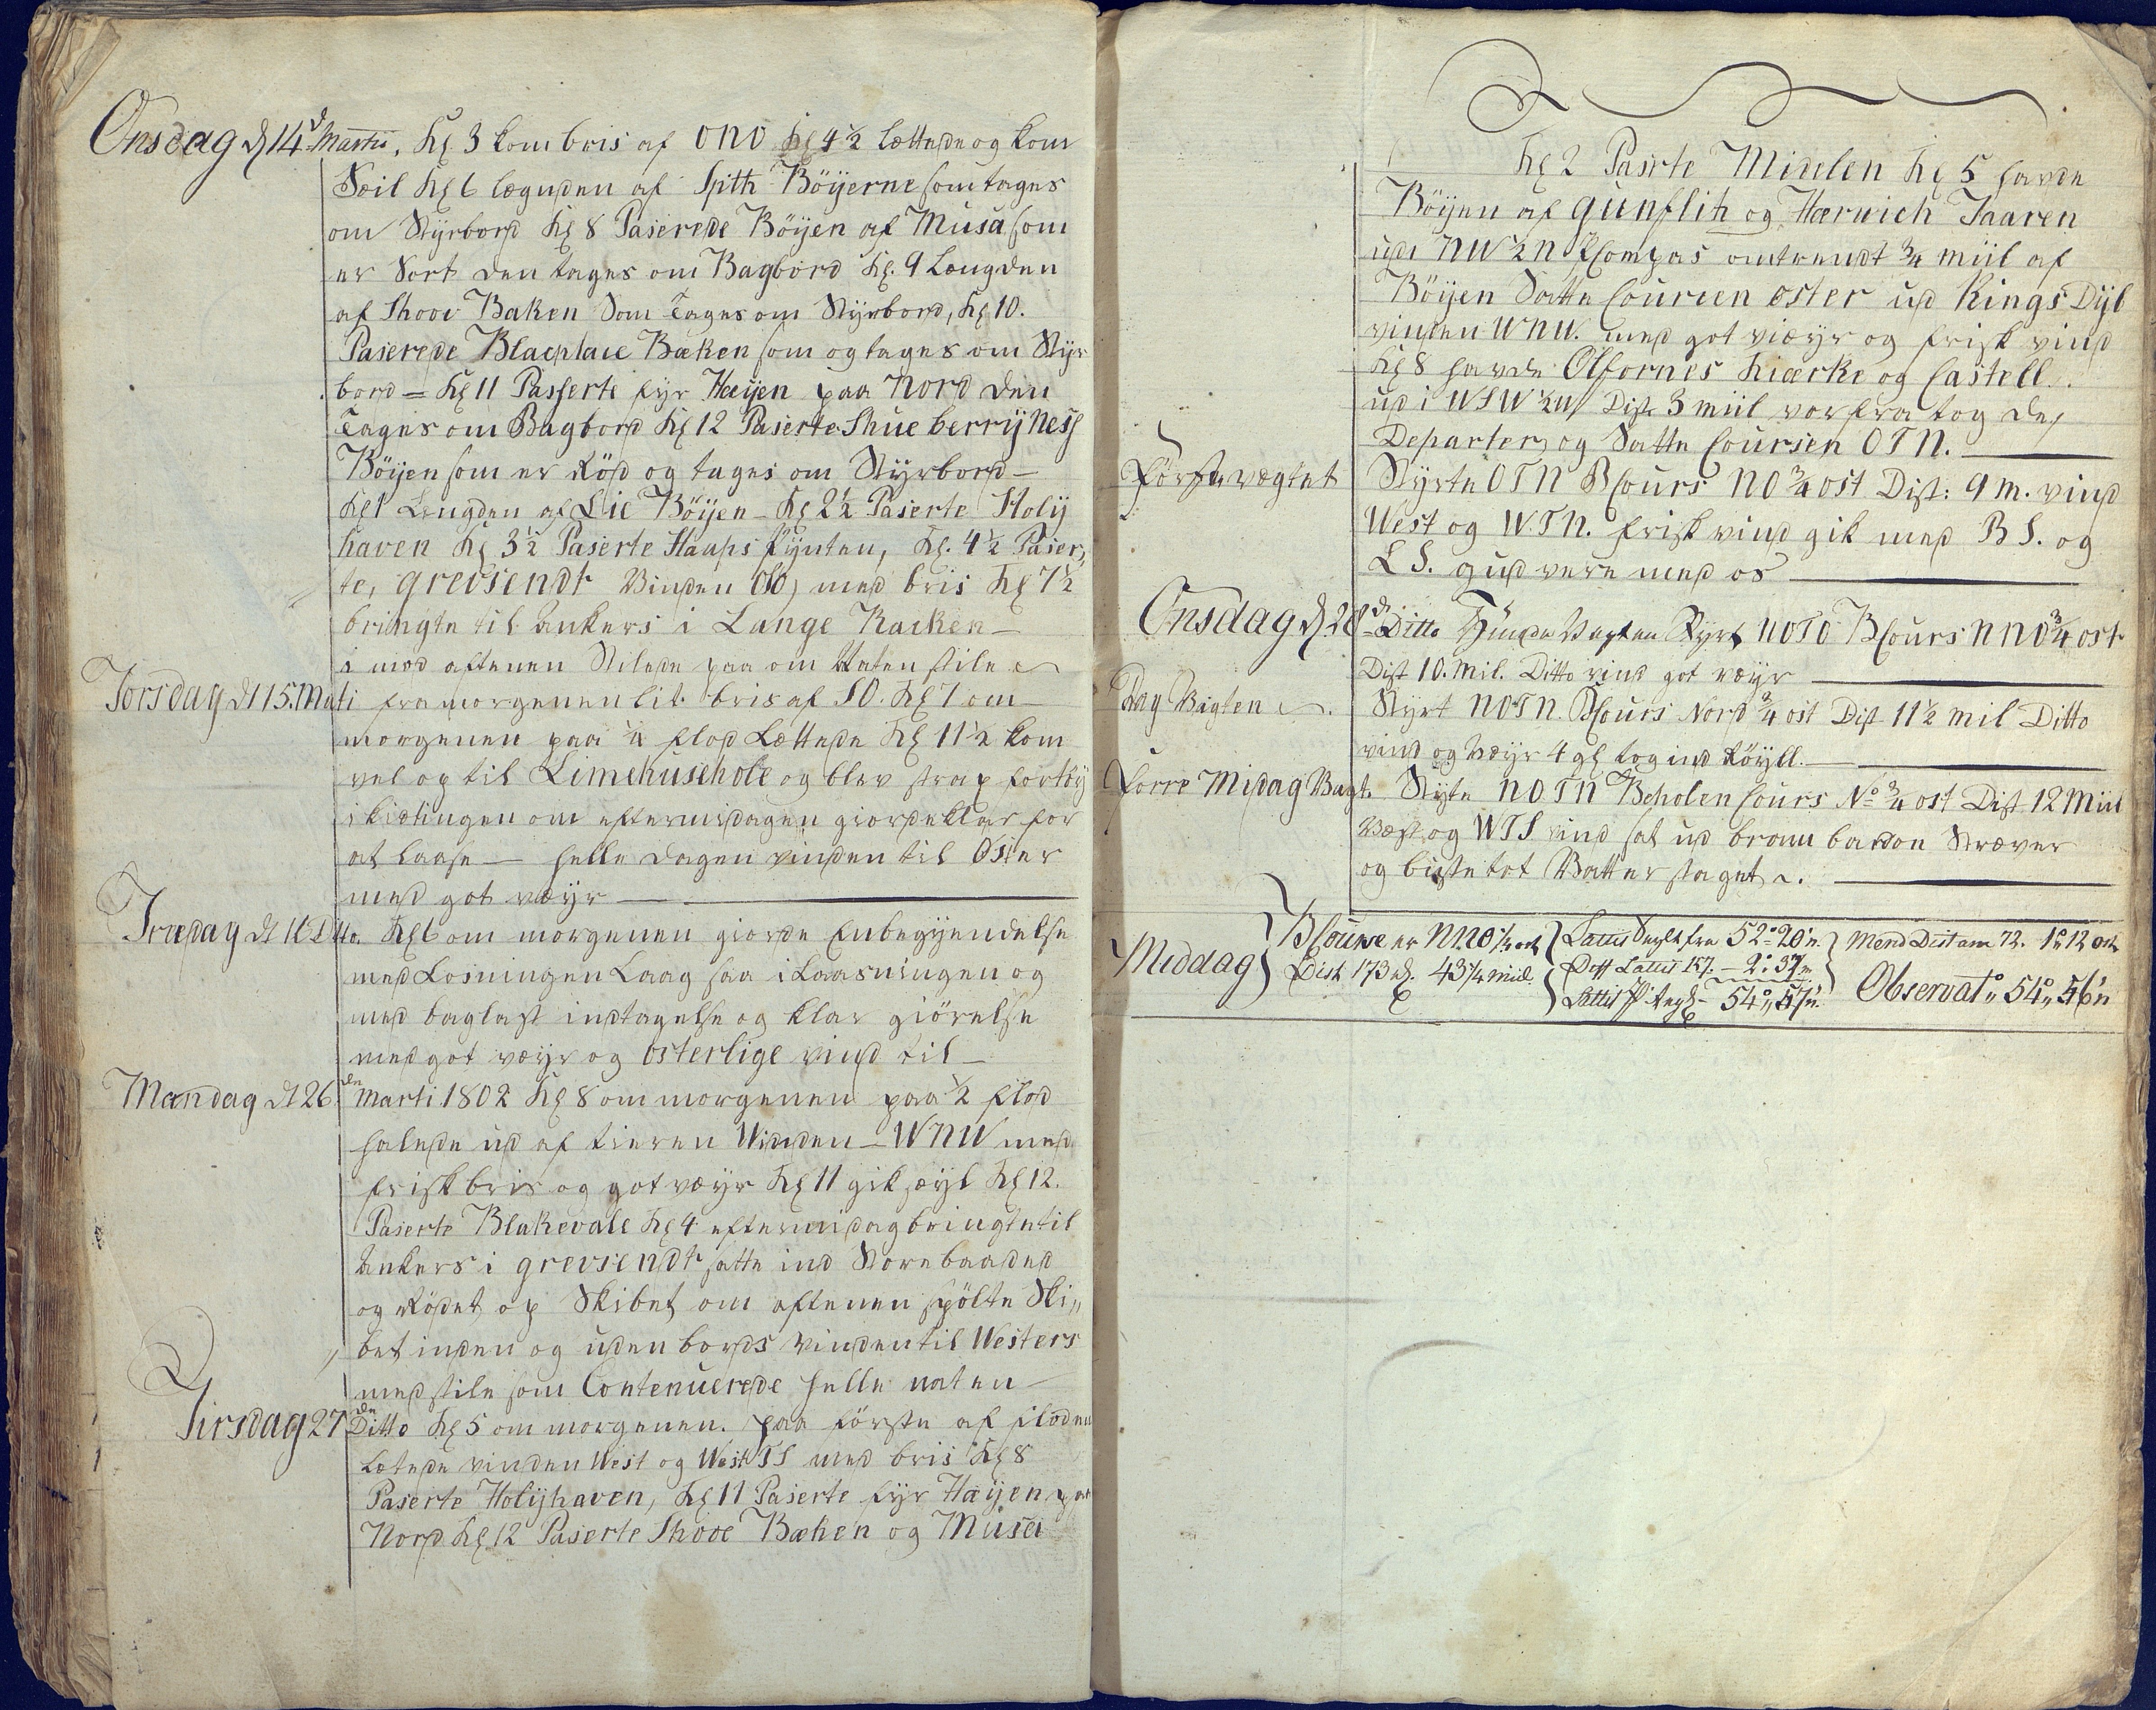 Onsdag d 14d Martii. Kl 3 kom bris af ONO Kl 4½ lættede og kom
Seil Kl 6 lægnden af Spith Böyerne som tages
om Styrbord Kl 8 Paserede Böyen af Musa som
er Sort den tages om Bagbord Kl. 9 Længden
af Shoov Baken Som Tages om Styrbord, Kl 10.
Paserede Blacplaie Baken som og tages om Styr
bord = Kl 11 Passerte fyr Høyen paa Nord den
Tages om Bagbord Kl 12 Paserte Shue berry Ness
Böyen som er Röd og tages om Styrbord —
Kl 1 Lengden af Lie Böyen – Kl 2½ Paserte Holy
haven Kl 3½ Paserte Haups Pynten, Kl. 4½ Paser„
te, grevsendt Vinden OSO, med bris Kl 7½
bringte til Ankers i Lange Racken —
i mod aftenen Stilede paa om Naten stile
Torsdag d 15. Mati fra morgenen lit bris af SO. Kl 7 om
morgenen paa ¼ flod Lættede Kl 11½ kom
vel op til Limehusehole og blev strax fortöy
i kietingen om eftermidagen giorde klar for
at laase — helle dagen vinden til Öster
med got veyr —
Fredag d 16 Ditto. Kl 6 om morgenen giorde Enbegyendelse
med Losningen Laag saa i Laasningen og
med baglast indtagelse og klar giörelse
med got veyr og osterlige vind til —
Mandag d 26den Marti 1802 Kl 8 om morgenen paa ½ flod
halede ud af tieren Winden — WNW med
frisk bris og got veyr Kl 11 gik seyl Kl 12.
Paserte Blakevale Kl 4 eftermidag bringte til
Ankers i grevsendt satte ind Storebaaded
og Rödet op Skibet om aftenen spölte Ski„
bet inden og uden bords vinden til Westers
med stile som Contenuerede helle naten —
Tirsdag 27de Ditto Kl 5 om morgenen. paa förste af floden
Letede vinden West og West TS med bris Kl 8
Paserte Holyhaven, Kl 11 Paserte fyr Høyen paa
Nord Kl 12 Paserte Shooe Baken og Musa
Kl 2 Paserte Midelen Kl 5 havde
Böyen af gunflith og Harwich Taaren
udi NW ½ N P Compas omtrendt ¾ miil af
Böyen Satte Coursen oster ud Kings Dyb
vinden WNW. med got vieyr og frisk vind
Kl 8 havde Olfornes Kierke og Castell.
ud i WSW ½ W Dist 3 miil vorfra tog de
Departer, og Satte Coursen OTN. —
Förstevægtet Styrte OTN BCours NO ¾ ost Dist: 9 m. vind
West og W.TN. frisk vind gik med BS. og
LS. gud vere med os —
Onsdag d 28d Ditto Hunde Vagten Styrt NOTO BCours NNO ¾ ost
Dist 10. Mil. Ditto vind got veyr —
Dag Vagten Styrt NOTN. BCours Nord ¾ ost Dist 11½ mil Ditto
vind og Veyr 4 gl tog ind Röyll. —
Forre Midag Vagt. Styrte NOTN Beholen Cours No ¾ ost Dist 12 Miil
West og WTS vind sat ud bram bardon Stræver
og — Vatter staget. —
Middag BCourse er NNO ¼ ost
Dist 173 43¼ Miil.
Lattis Seylt fra 52° 20' n
Deff Lattis 157. – 2° 37 n
Lattit 54° „ 57' n.
Mend Distanc 72. 1° 12 ost
Observat° „ 54° „ 56' n